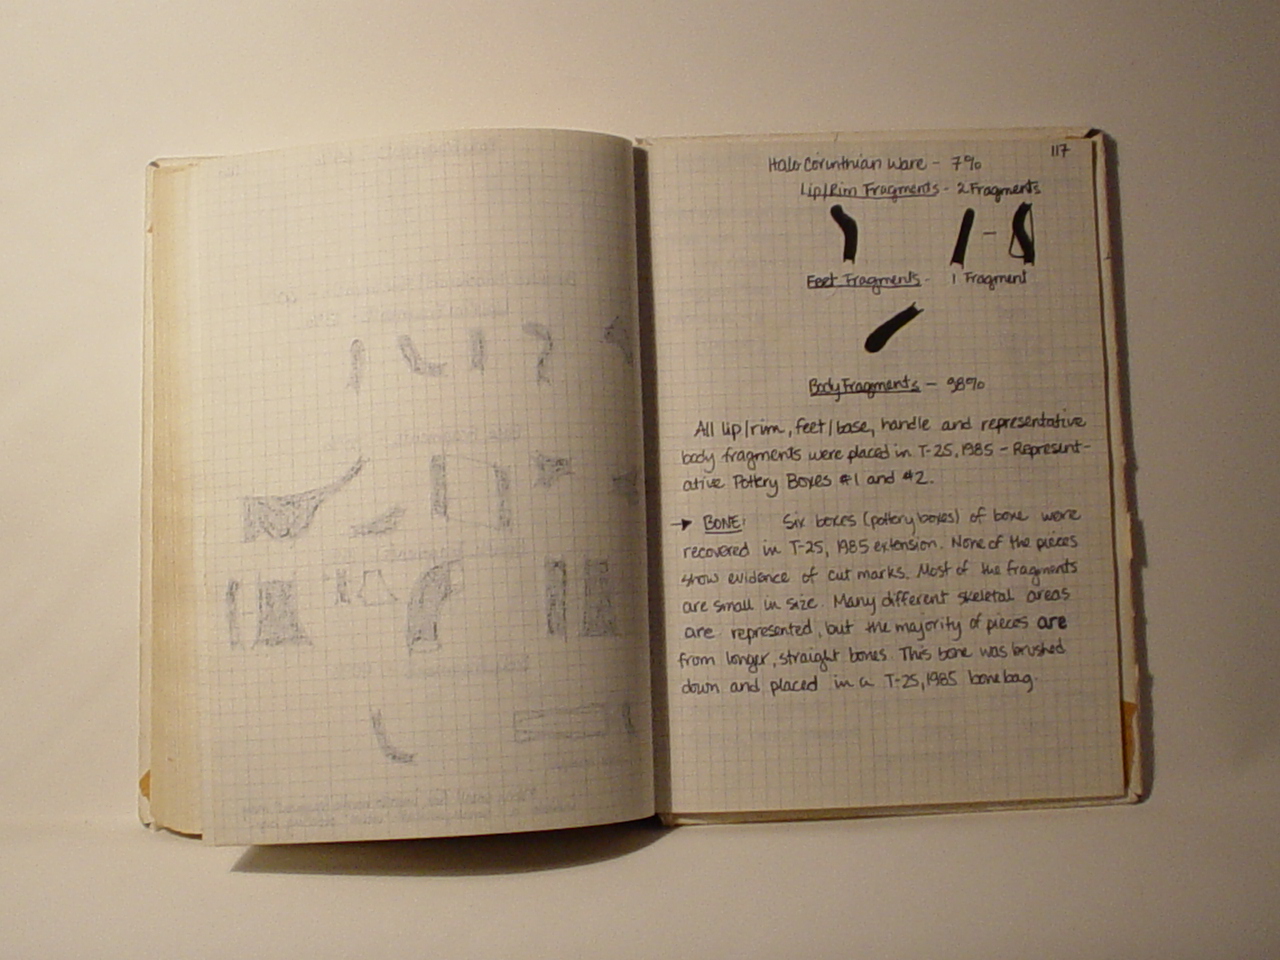 117
Halo Corinthian Ware - 7%
Lip/Rim Fragments - 2 Fragments
Feet Fragments - 1 Fragment
Body Fragments - 98%
All lip/rim, feet/base, handle and representative
body fragments were placed in T-25, 1985 - Represent-
ative Pottery Boxes #1 and #2.
→ BONE: Six boxes (pottery boxes) of bone were
recovered in T-25, 1985 extension. None of the pieces
show evidence of cut marks. Most of the fragments
are small in size. Many different skeletal areas
are represented, but the majority of pieces are
from longer, straight bones. This bone was brushed
down and placed in a T-25, 1985 bone bag.